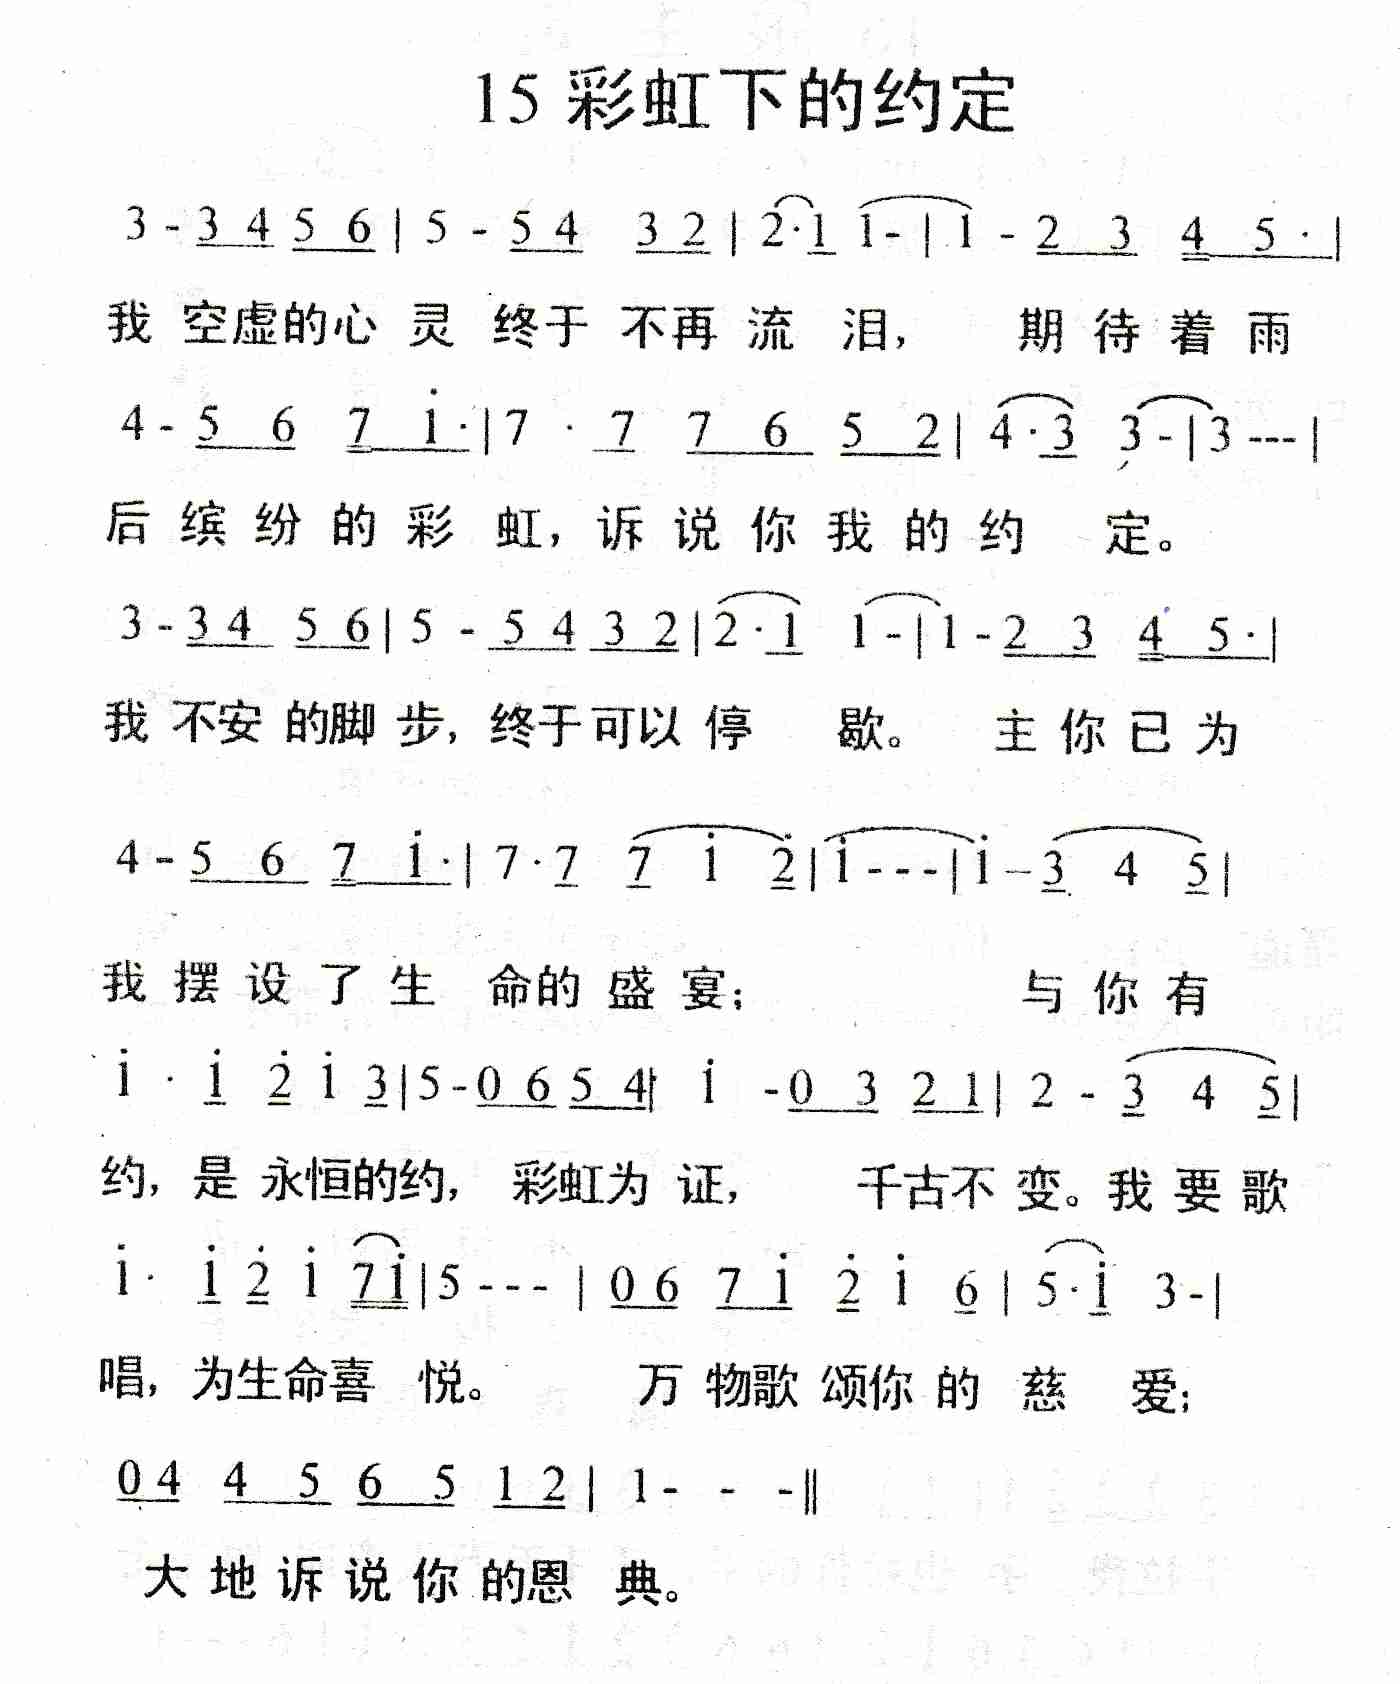 15 彩虹下的约定
3 - 3 4 5 6 | 5 - 5 4 3 2 | 2·1 1 - | 1 - 2 3 4 5· |
我 空虚的心 灵 终于 不再 流 泪, 期 待 着 雨
4 - 5 6 7 i· | 7 · 7 7 6 5 2 | 4·3 3 - | 3 --- |
后 缤 纷 的 彩 虹, 诉 说 你 我 的 约 定。
3 - 3 4 5 6 | 5 - 5 4 3 2 | 2·1 1 - | 1 - 2 3 4 5· |
我 不安 的脚 步, 终于可以 停 歇。 主 你 已 为
4 - 5 6 7 i· | 7·7 7 i 2̇ | i - - - | i - 3 4 5 |
我 摆 设 了 生 命的 盛 宴; 与 你 有
i · i 2̇ i 3 | 5 - 0 6 5 4 | i - 0 3 2 1 | 2 - 3 4 5 |
约, 是 永恒的约, 彩虹为 证, 千古不 变。我 要 歌
i· i 2̇ i 7 i | 5 - - - | 0 6 7 i 2̇ i 6 | 5·i 3 - |
唱, 为生命喜 悦。 万 物歌 颂你 的 慈 爱;
0 4 4 5 6 5 1 2 | 1 - - - ‖
大 地 诉 说 你 的恩 典。